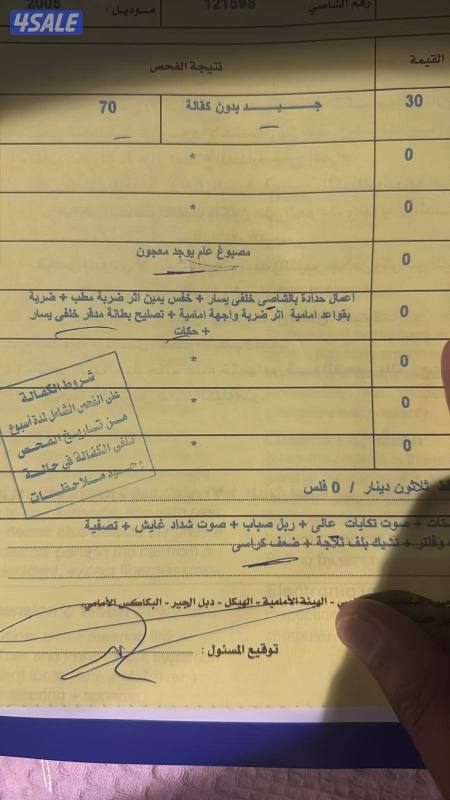 4SALE
رقم الشاصي 121598 موديل : 2005
القيمة نتيجة الفحص
30 جـيـد بدون كفالة 70
0 *
0 *
0 مصبوغ عام يوجد معجون
0 اعمال حدادة بالشاصي خلفي يسار + خفس يمين اثر ضربة مطب + ضربة
بقواعد امامية اثر ضربة واجهة امامية + تصليح بطانة مدقر خلفي يسار
+ حكات
0 *
0 *
0 *
شروط الكفالة
على الفحص الشامل لمدة أسبوع
من تاريخ الفحص
تلغي الكفالة في حالة
وجود ملاحظات
ثلاثون دينار / 0 فلس
+ صوت تكايات عالى + ربل صباب + صوت شداد غايش + تصفية
وفلتر + تشيك بلف ثلاجة + ضعف كراسى
الهيئة الأمامية - الهيكل - دبل الجير - البكاكس الأمامي
توقيع المسئول :